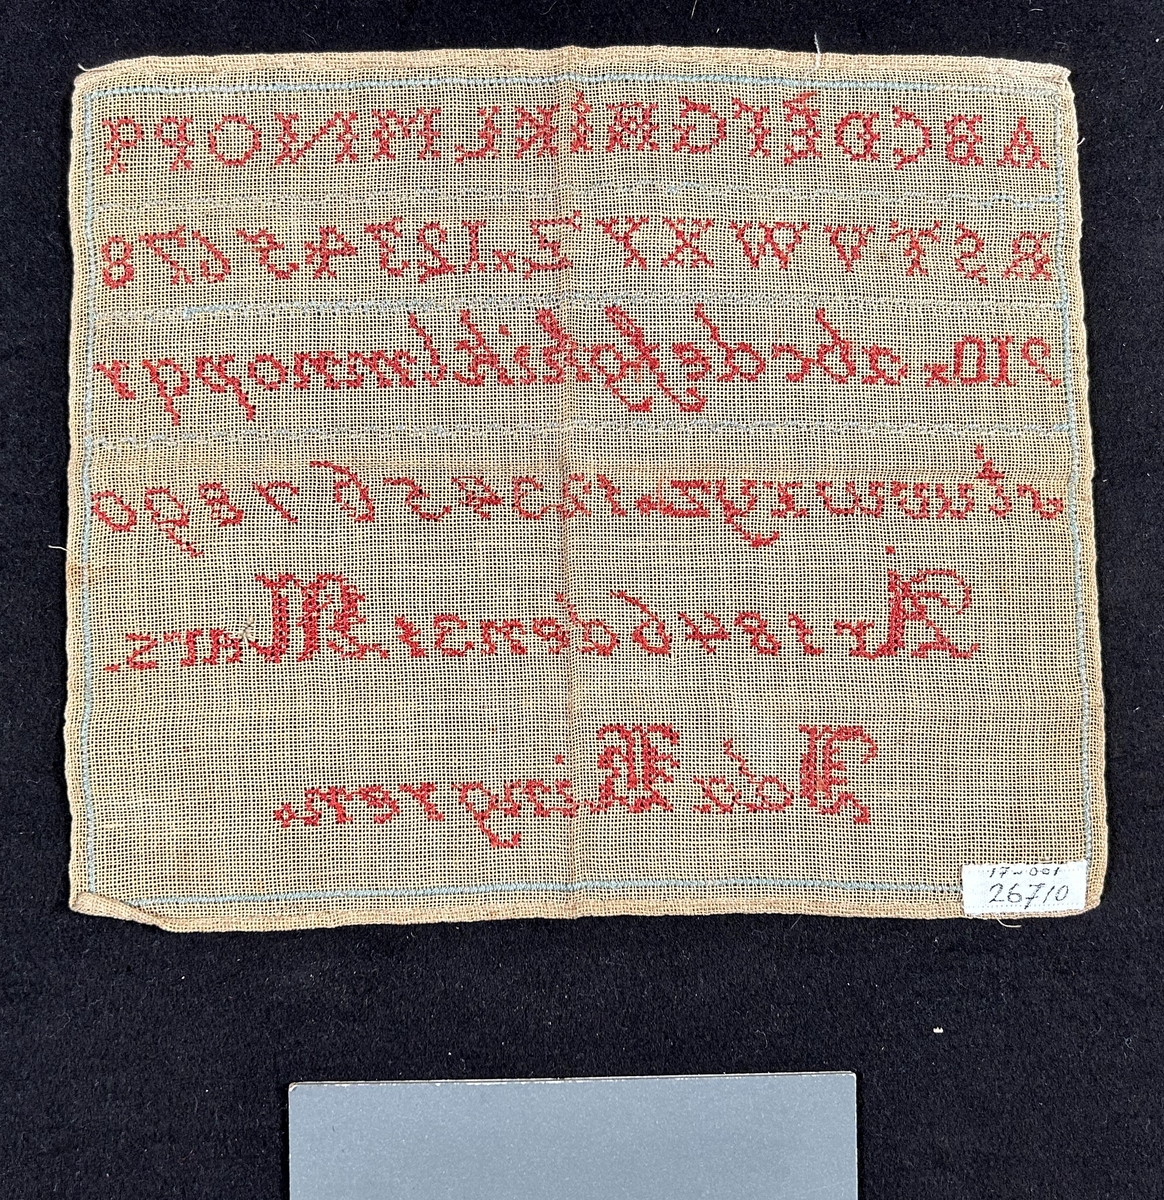 A B C D E F G H I K L M N O P Q
R S T V W X Y Z . 1 2 3 4 5 6 7 8
9 10 . a b c d e f g h i k l m n o p q r
s t u v w x y z . 1 2 3 4 5 6 7 8 9 0
År 1846 den 31 Mars.
Ida
17-001
26710